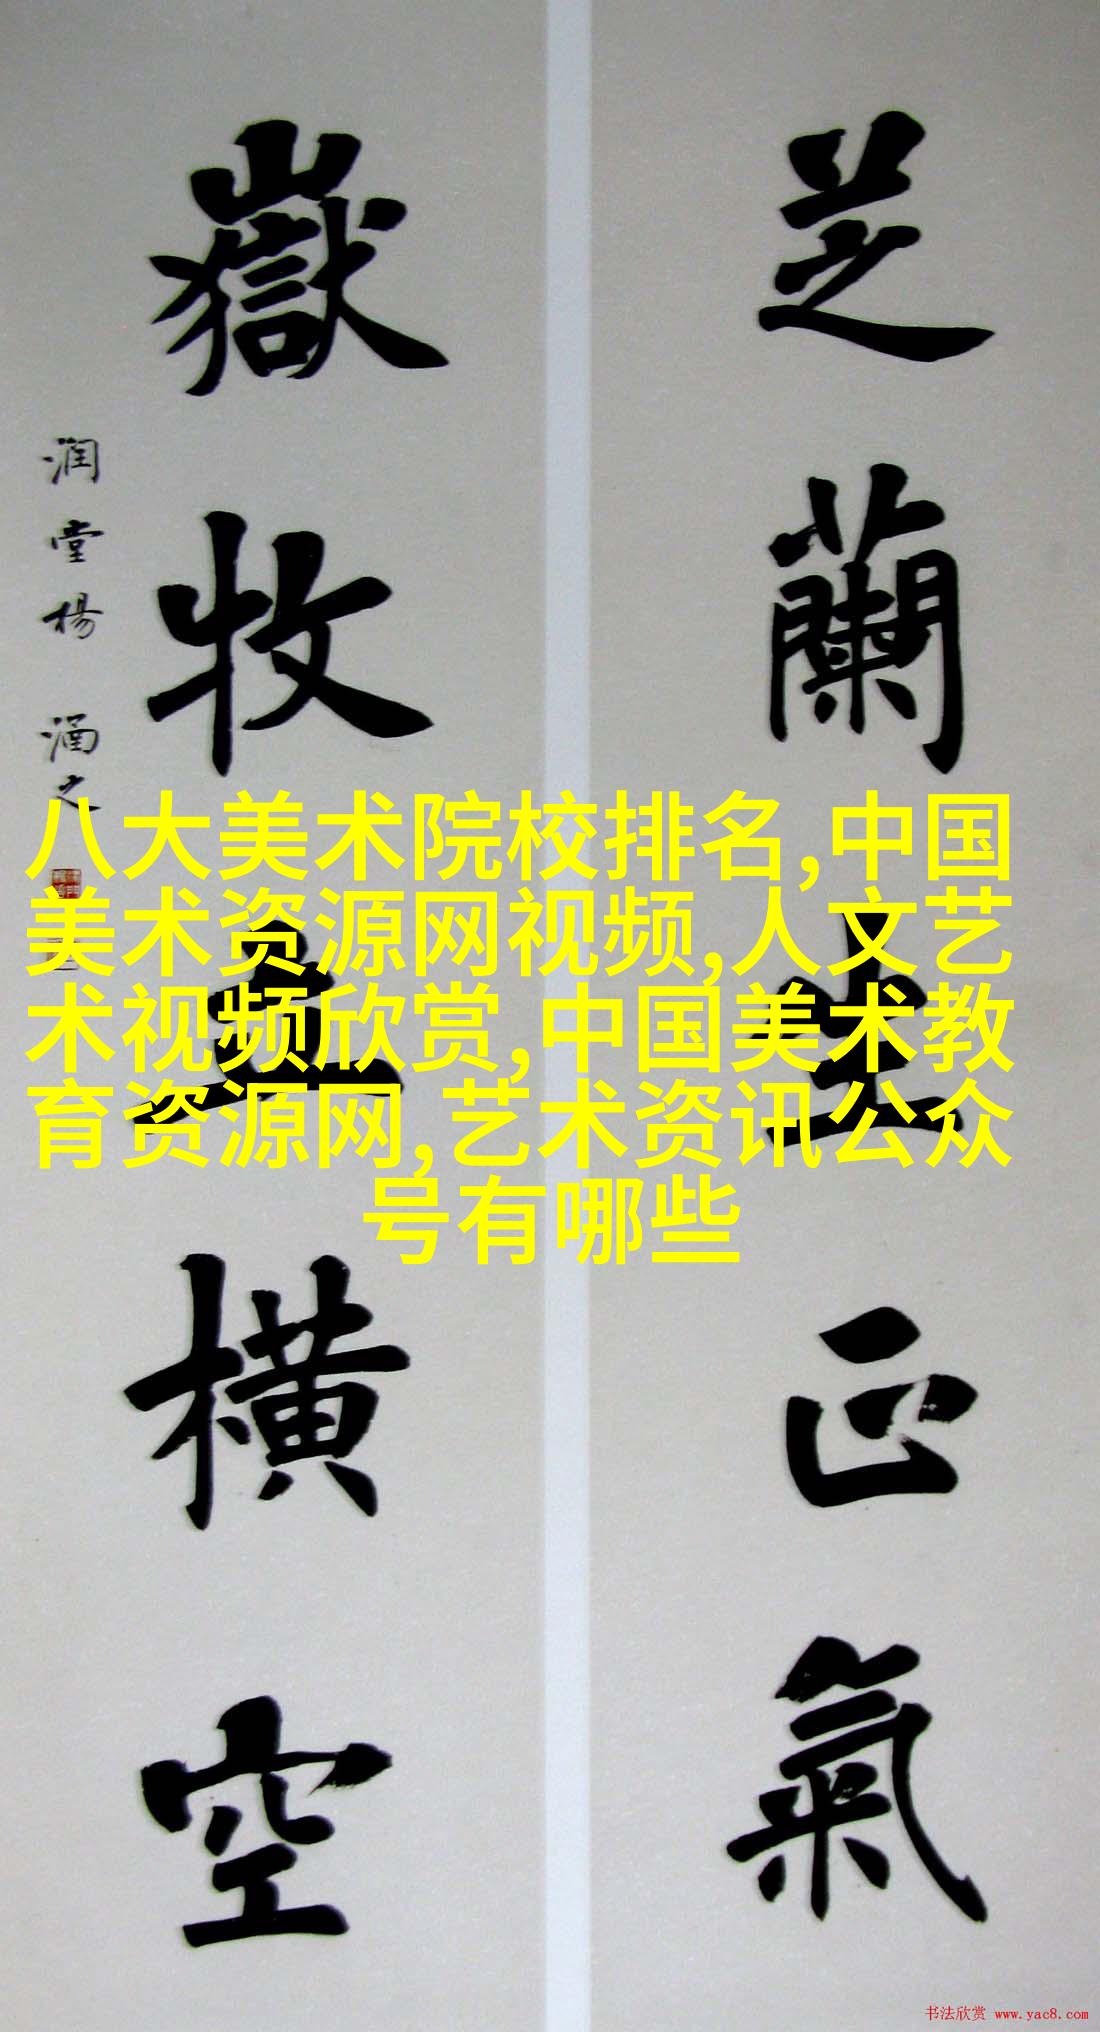 芝蘭生正氣
嶽牧横空
润堂楊涵之
八大美术院校排名,中国
美术资源网视频,人文艺
术视频欣赏,中国美术教
育资源网,艺术资讯公众
号有哪些
书法欣赏 www.yac8.com